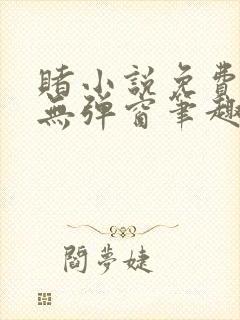 賭小説免費
無彈窗筆趣
閻夢婕